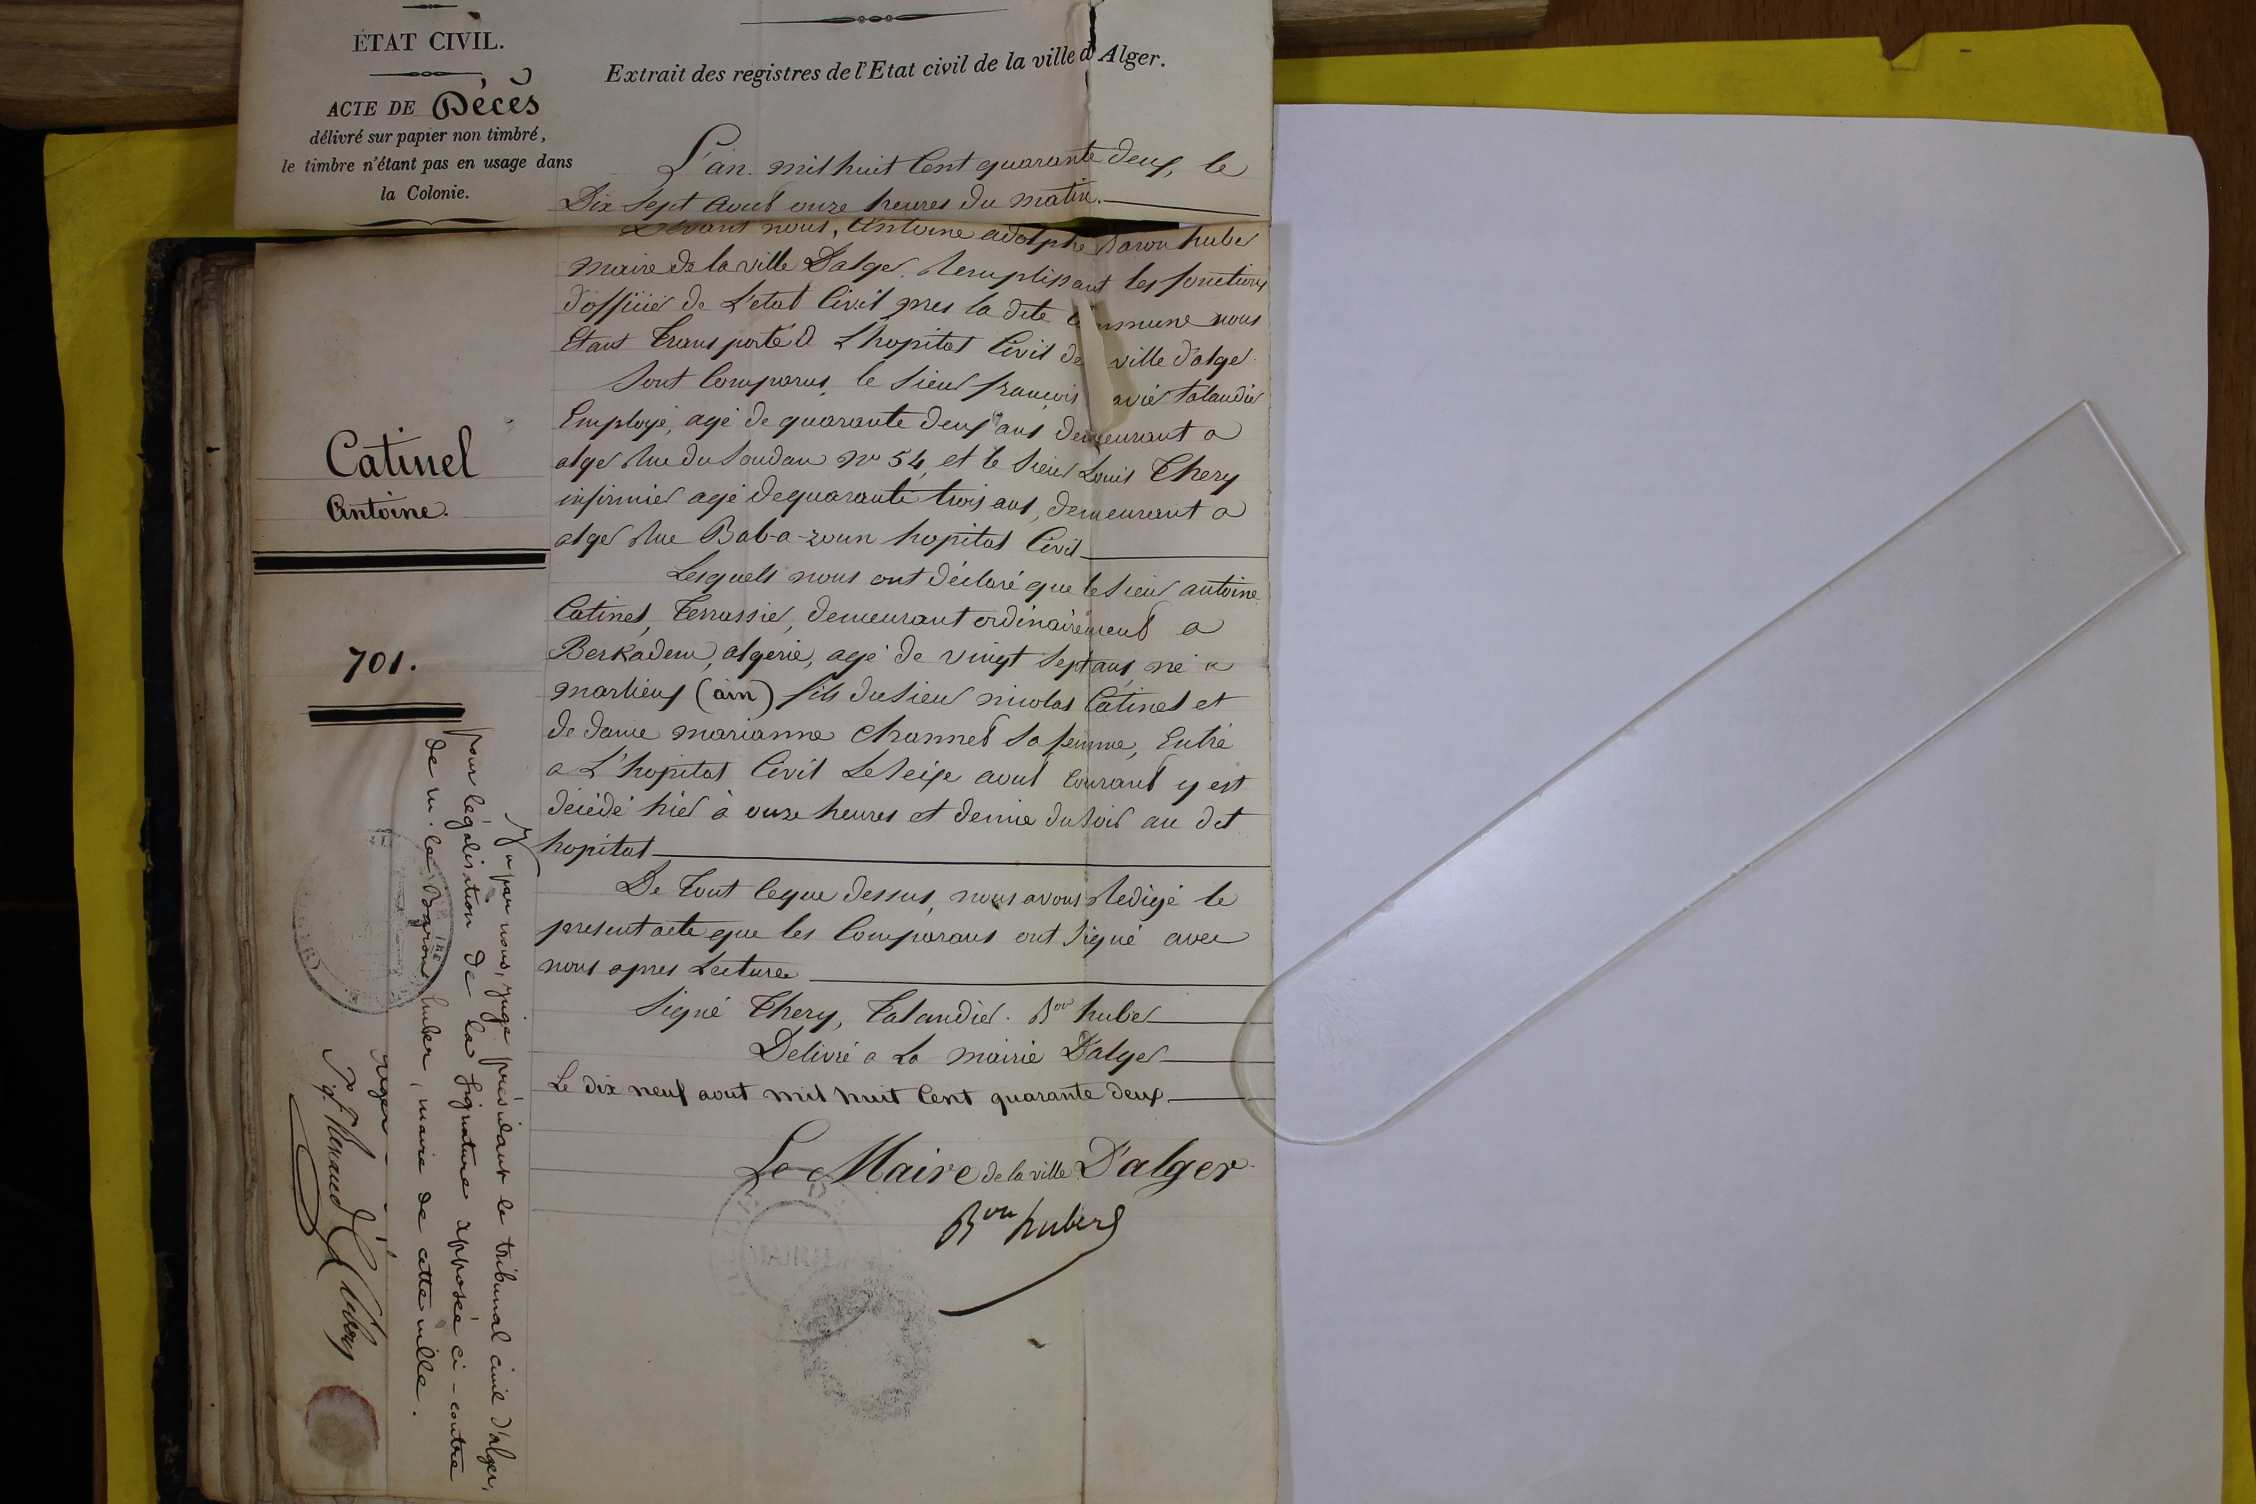 ÉTAT CIVIL.
ACTE DE Décès
délivré sur papier non timbré,
le timbre n'étant pas en usage dans
la Colonie.
Extrait des registres de l'Etat civil de la ville d'Alger.
L'an mil huit Cent quarante deux, le
Dix Sept Aout onze heures du matin.
Devant nous, Antoine adolphe Baron huber
maire de la ville D'alger. Remplissant les fonctions
d'officier de L'etat Civil pres la dite commune nous
Etant Transporté à L'hopital Civil de ville d'alger
Sont Comparus, le Sieur françois avier talandier
Employé, agé de quarante deux ans demeurant a
alger Rue du Soudan No 54, et le Sieur Louis Thery
infirmier agé de quarante trois ans, demeurant a
alger Rue Bab-a-zoun hopital Civil
Lesquels nous ont déclaré que le Sieur antoine
Catinel, Terrassier, demeurant ordinairement a
Berkadem, algerie, agé de vingt Sept ans, né a
marlieux (ain) fils du Sieur nicolas Catinel et
de dame marianne Channel Sa femme, Entré
a L'hopital Civil Le Seize aout Courant y est
décédé hier à onze heures et demie du Soir au dit
hopital
De Tout Ceque dessus, nous avons Redigé le
present acte que les Comparans ont Signé avec
nous apres Lecture
Signé Thery, Talandier. Bon huber
Delivré a La mairie D'alger
Le dix neuf aout mil huit Cent quarante deux
Le Maire de la ville D'alger
Bon huber
Catinel
Antoine.
701.
Vu par nous, juge présidant le tribunal civil d'alger,
pour légalisation de la signature apposée ci-contre
de M. le Baron huber, maire de cette ville.